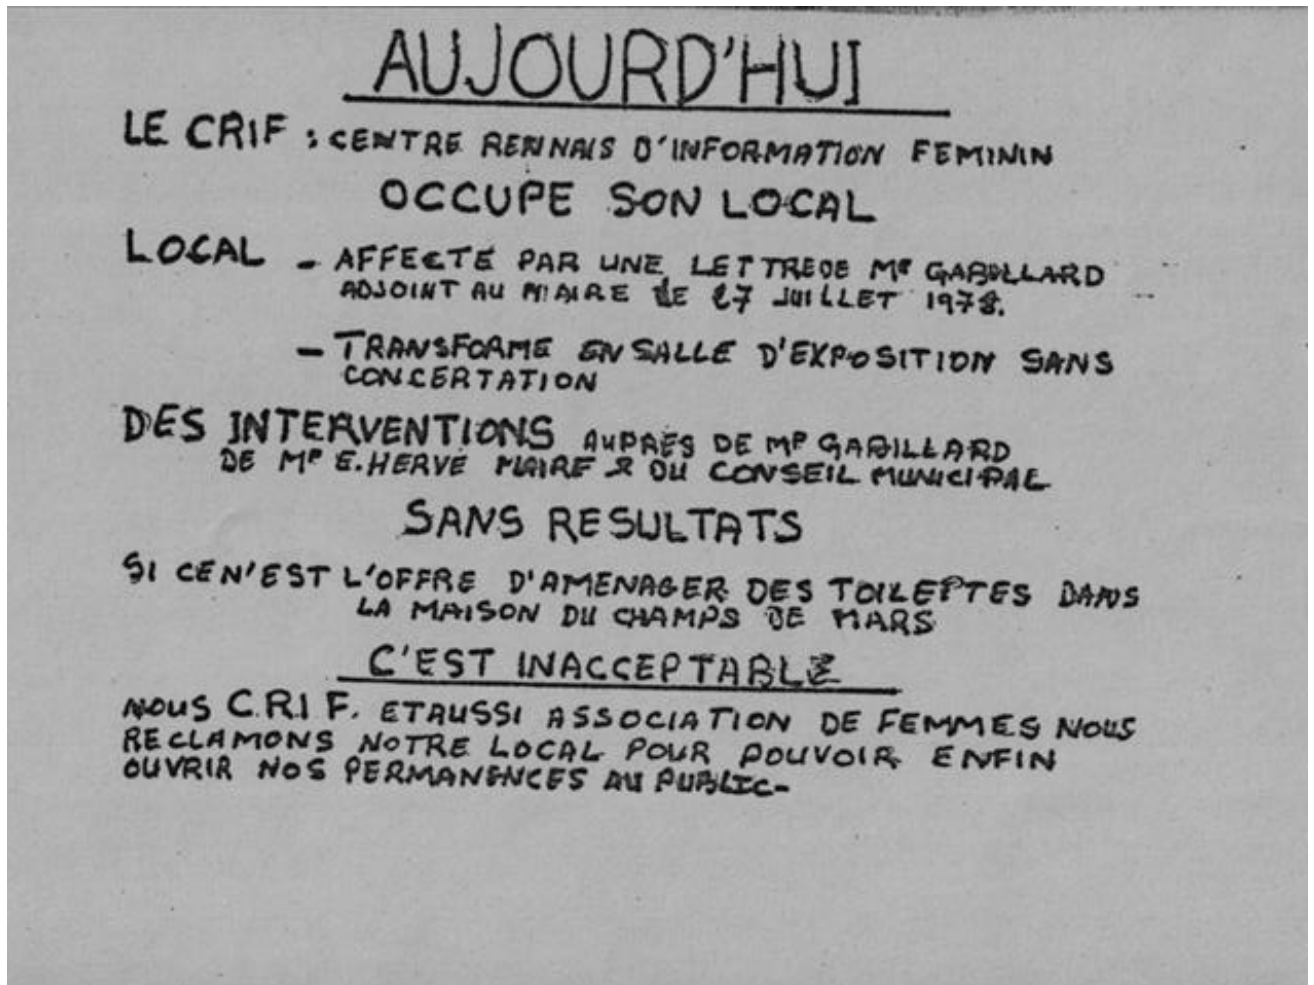 AUJOURD'HUI
LE CRIF : CENTRE RENNAIS D'INFORMATION FEMININ
OCCUPE SON LOCAL
LOCAL - AFFECTÉ PAR UNE LETTRE DE Mr GABILLARD
ADJOINT AU MAIRE LE 27 JUILLET 1978.
- TRANSFORME EN SALLE D'EXPOSITION SANS
CONCERTATION
DES INTERVENTIONS AUPRES DE Mr GABILLARD
DE Mr E. HERVE MAIRE & DU CONSEIL MUNICIPAL
SANS RESULTATS
SI CE N'EST L'OFFRE D'AMENAGER DES TOILETTES DANS
LA MAISON DU CHAMPS DE MARS
C'EST INACCEPTABLE
NOUS C.R.I F. ET AUSSI ASSOCIATION DE FEMMES NOUS
RECLAMONS NOTRE LOCAL POUR POUVOIR ENFIN
OUVRIR NOS PERMANENCES AU PUBLIC-